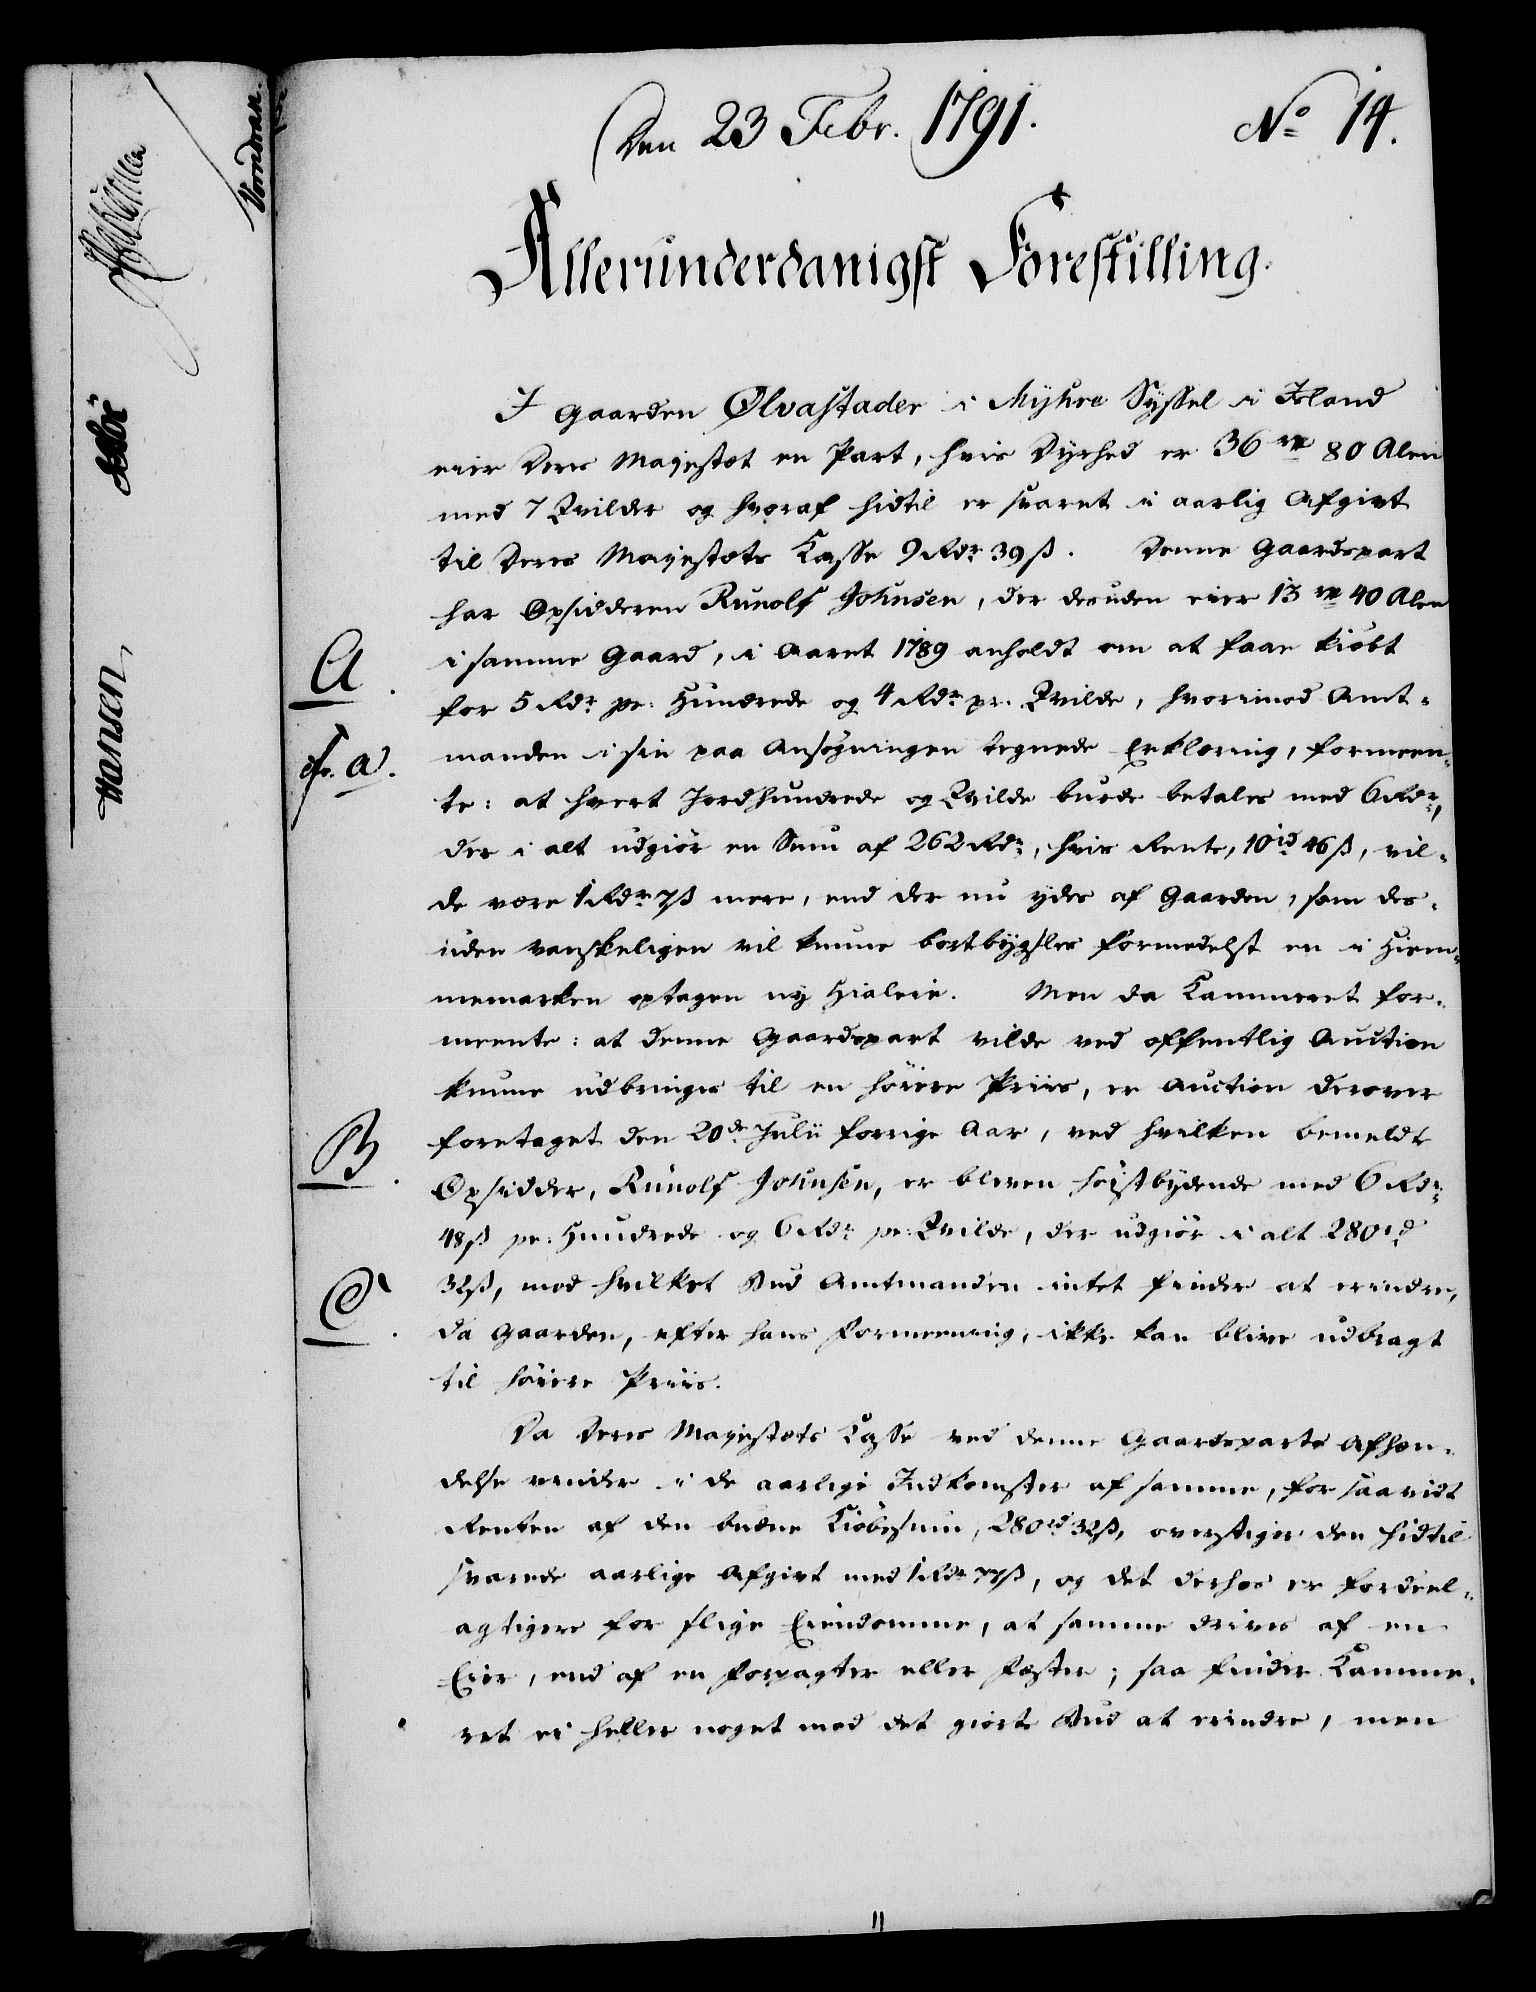 Den 23 Febr. 1791. No 14.
Allerunderdanigst Forestilling.
I Gaarden Ølvastader i Myhre Syssel i Island
eier Deres Majestæt en Part, hvis Dyrhed er 36 rc 80 Alen
med 7 Qvilder og hvoraf hidtil er svaret i aarlig Afgivt
til Deres Majestæts Kasse 9 Rdr 39 ß. Denne Gaardspart
har Opsidderen Runolf Johnsen, der desuden eier 13 rc 40 Alen
A. i samme Gaard, i Aaret 1789 anholdt om at faae kiøbt
for 5 Rdr pr: Hundrede og 4 Rdr pr. Qvilde, hvorimod Amt-
cfr. a. manden i sin paa Ansøgningen tegnede Erklæring, formeen-
te: at hvert Jordhundrede og Qvilde burde betales med 6 Rdr,
der i alt udgiør en Sum af 262 Rdr, hvis Rente, 10 rd 46 ß, vil-
de være 1 Rdr 7 ß mere, end der nu ydes af Gaarden, som des-
uden vanskeligen vil kunne bortbygsles formedelst en i Hiem-
memarken optagen ny Hialeie. Men da Kammeret for-
meente: at denne Gaardspart vilde ved offentlig Auction
kunne udbringes til en høiere Priis, er Auction derover
B. foretaget den 20de Julii forrige Aar, ved hvilken bemeldte
Opsidder, Runolf Johnsen, er bleven høistbydende med 6 Rdr
48 ß pr: Hundrede og 6 Rdr pr: Qvilde, der udgiør i alt 280 rd
C. 32 ß, mod hvilket Bud Amtmanden intet finder at erindre,
da Gaarden, efter hans Formeening, ikke kan blive udbragt
til høiere Priis.
Da Deres Majestæts Kasse ved denne Gaardsparts Afhæn-
delse vinder i de aarlige Indkomster af samme, for saavidt
Renten af den budne Kiøbesum, 280 rd 32 ß, overstiger den hidtil
svarede aarlige Afgivt med 1 Rdr 77 ß, og det derhos er fordeel-
agtigere for slige Eiendomme, at samme drives af en
Eier, end af en Forpagter eller Fæster; saa finder Kamme-
ret ei heller noget mod det giorte Bud at erindre, men
11
Hansen